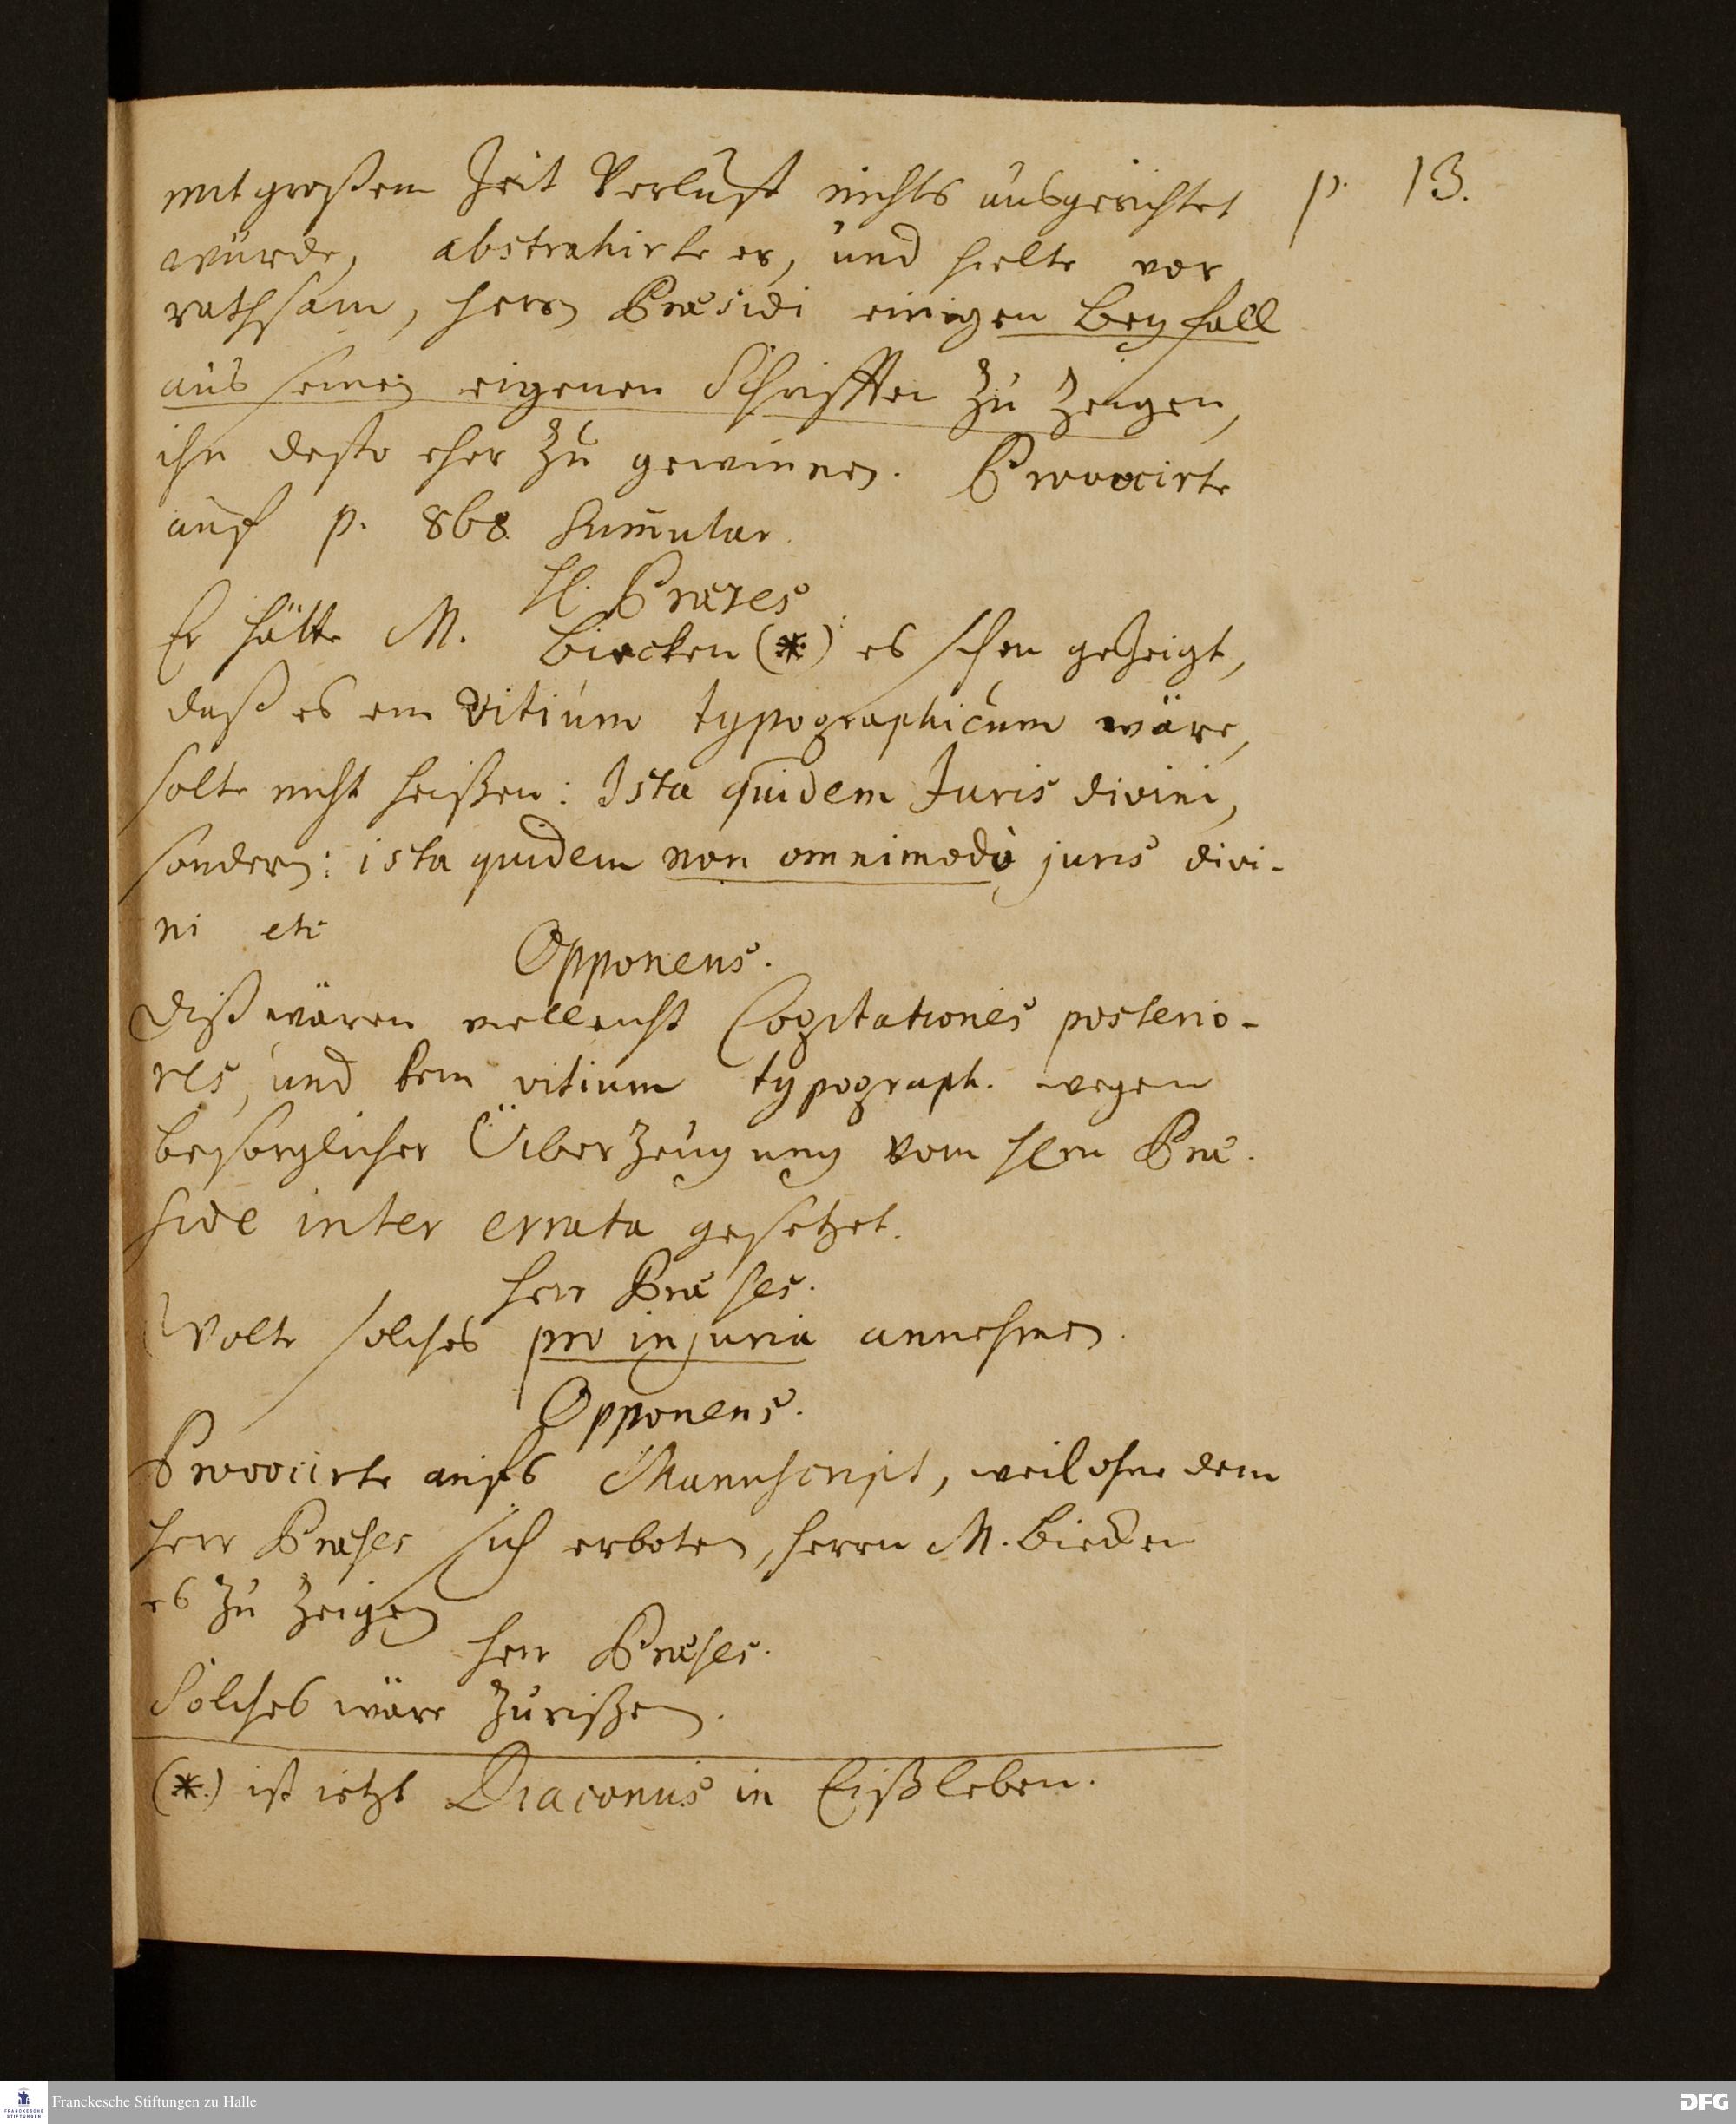 p. 13.
mit großem Zeit Verlust nichts ausgerichtet
würde, abstrahirte er, und hielte vor
rathsam, Herrn Præsidi einigen Beyfall
aus seinen eigenen Schrifften zu zeigen,
ihn desto eher zu gewinnen. Provocirte
auf p. 868.
H. Præses
Er hätte M. Biecken (*) es schon gezeigt,
daß es ein vitium typographicum wäre,
solte nicht heißen: Ista quidem Juris divini,
sondern: ista quidem non omnimodò juris divi-
ni etc
Opponens.
Diß wären vielleicht Cogitationes posterio-
res, und kein vitium typograph. wegen
besorglicher Überzeugung vom Hrn Præ-
side inter errata gesetzet.
Herr Præses.
Wolte solches pro injuria annehmen.
Opponens.
Provocirte aufs Manuscript, weil ohne dem
Herr Præses sich erboten, Herrn M. Biecken
es zu zeigen
Herr Præses.
Solches wäre zurißen.
(*) ist ietzt Diaconus in Eißleben.
FRANCKESCHE STIFTUNGEN
Franckesche Stiftungen zu Halle
DFG